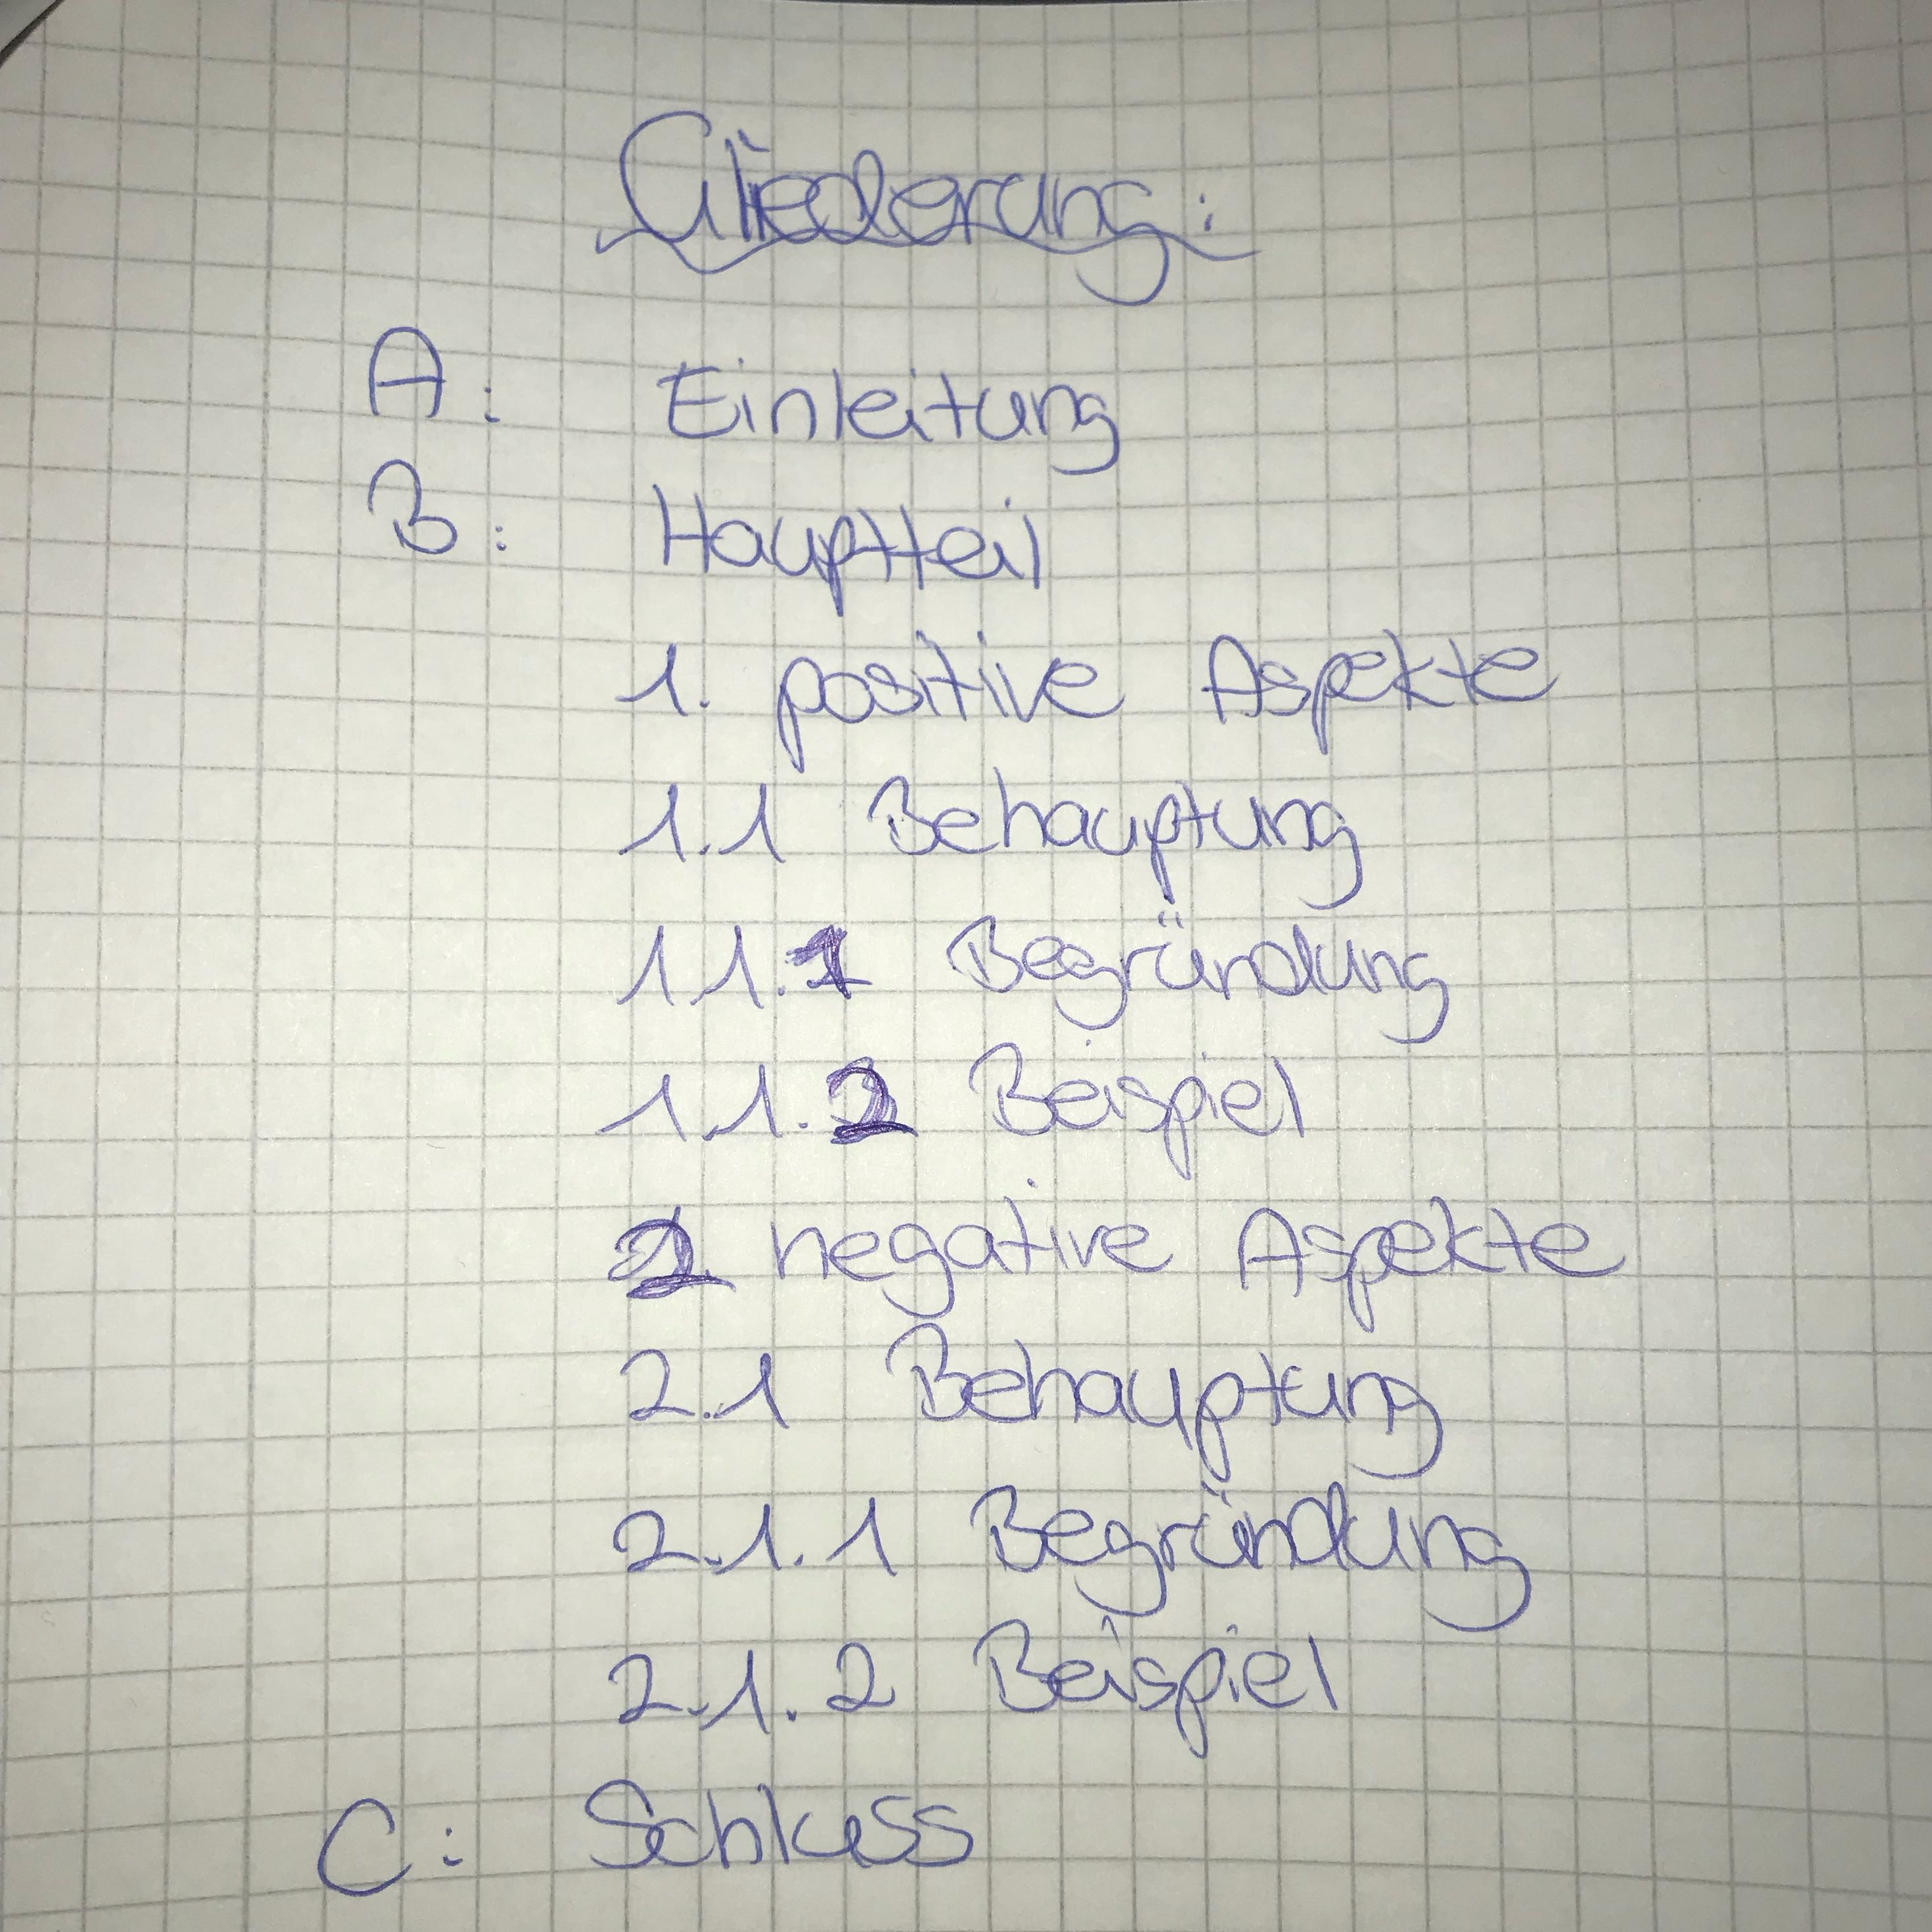 Gliederung:
A: Einleitung
B: Hauptteil
1. positive Aspekte
1.1 Behauptung
1.1.1 Begründung
1.1.2 Beispiel
2 negative Aspekte
2.1 Behauptung
2.1.1 Begründung
2.1.2 Beispiel
C: Schluss